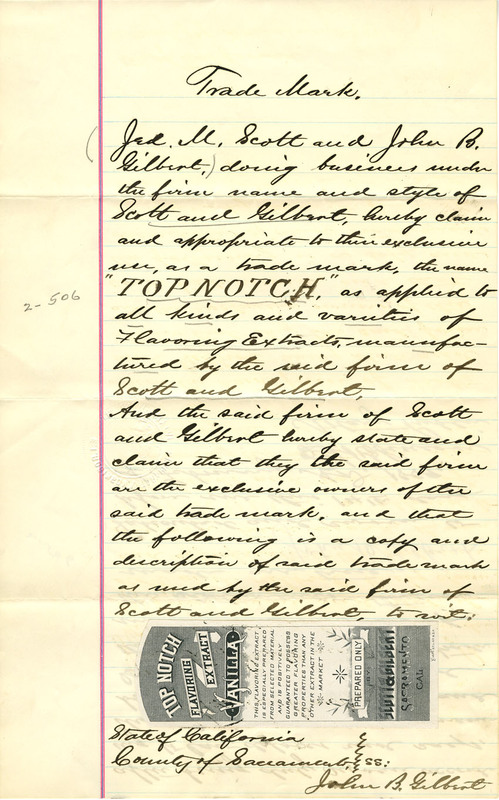 Trade Mark.
(Jed. M. Scott and John B.
Gilbert,) doing business under
the firm name and style of
Scott and Gilbert, hereby claim
and appropriate to their exclusive
use, as a trade mark, the name
"TOP NOTCH," as applied to
all kinds and varieties of
Flavoring Extracts, manufac-
tured by the said firm of
Scott and Gilbert.
And the said firm of Scott
and Gilbert hereby state and
claim that they the said firm
are the exclusive owners of the
said trade mark, and that
the following is a copy and
description of said trade mark
as used by the said firm of
Scott and Gilbert, to wit:
2-506
TOP NOTCH
FLAVORING
EXTRACT
VANILLA
THIS FLAVORING EXTRACT
IS ESPECIALLY PREPARED
FROM SELECTED MATERIAL
AND IS POSITIVELY
GUARANTEED TO POSSESS
GREATER FLAVORING
PROPERTIES THAN ANY
OTHER EXTRACT IN THE
MARKET
PREPARED ONLY
BY
SCOTT & GILBERT
SACRAMENTO
CAL
State of California
County of Sacramento } ss:
John B. Gilbert